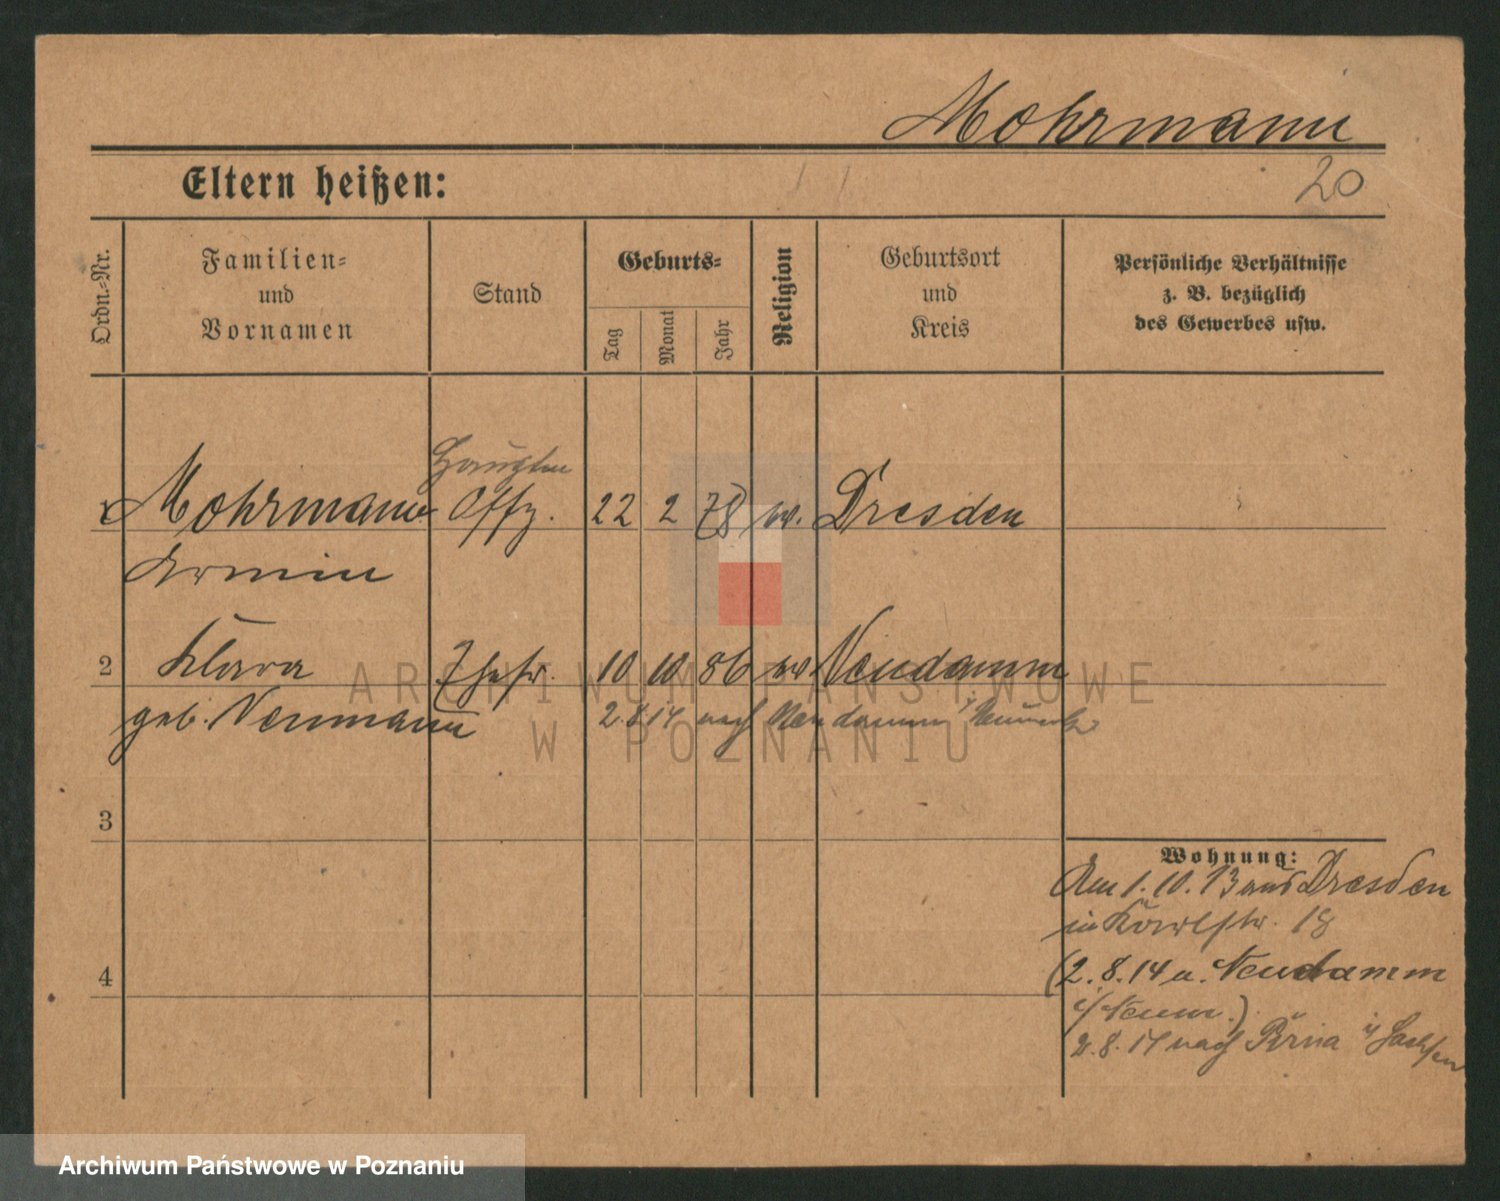 Mohrmann
Eltern heißen:
20
Ordn.-Nr.
Familien-
und
Vornamen
Stand
Geburts-
Tag
Monat
Jahr
Religion
Geburtsort
und
Kreis
Persönliche Verhältnisse
z. B. bezüglich
des Gewerbes usw.
Hauptm
1 Mohrmann Offz. 22 2 78 ev. Dresden
Armin
2 Klara Ehefr. 10 10 86 ev Neudamm
geb. Neumann 2.8.14 nach Neudamm i/Neumark
3
Wohnung:
Am 1.10.13 aus Dresden
in Karlstr. 18
4
(2.8.14 n. Neudamm
i/Neum.)
2.8.14 nach Pirna i/Sachsen
ARCHIWUM PAŃSTWOWE
W POZNANIU
Archiwum Państwowe w Poznaniu